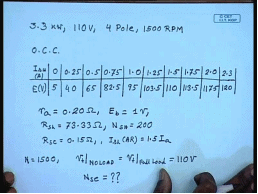 © CET
I.I.T. KGP
3.3 KW, 110V, 4 Pole, 1500 RPM
O.C.C.
Ish (A) 0 0.25 0.5 0.75 1.0 1.25 1.5 1.75 2.0 2.3
E(V) 5 40 65 82.5 95 103.5 110 113.5 117.5 120
ra = 0.20Ω, Eb = 1V,
Rsh = 73.33Ω, Nsh = 200
Rse = 0.15Ω, Ish(AR) = 1.5Ia
N=1500, Vt|NO LOAD = Vt|Full Load = 110V
Nse = ??